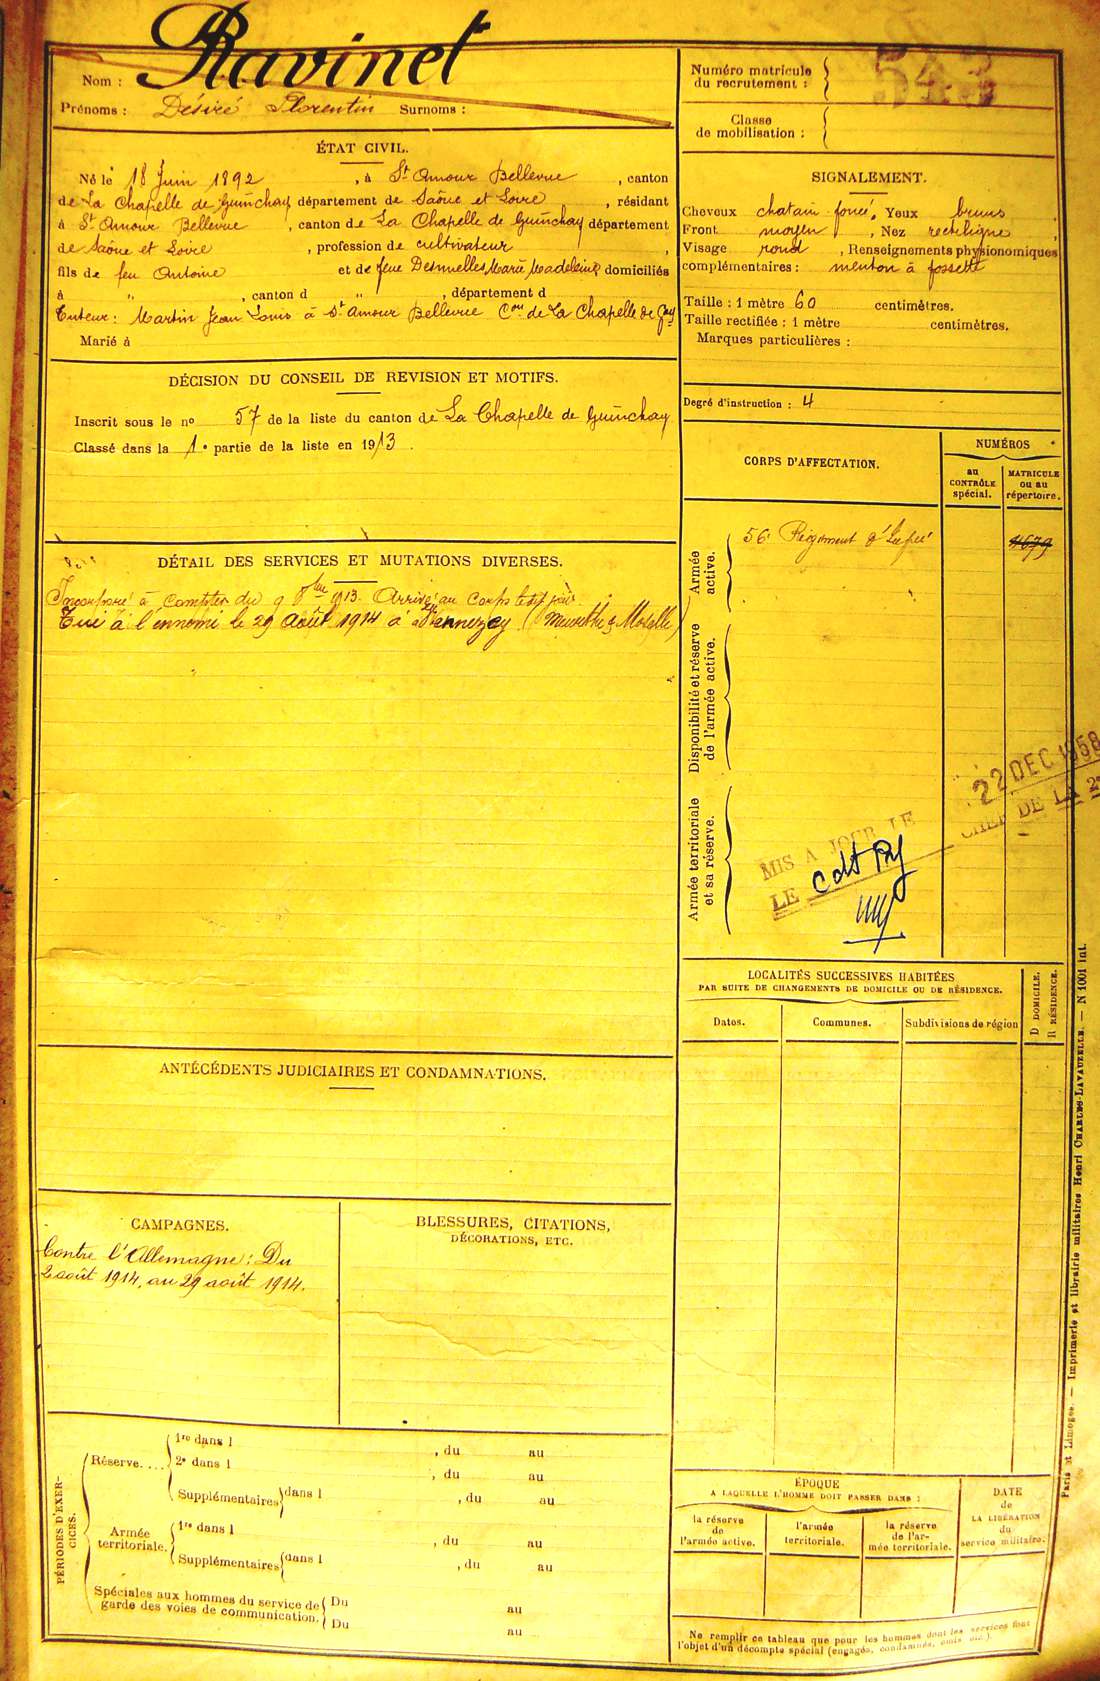 Nom : Ravinet
Prénoms : Désiré Florentin Surnoms :
ÉTAT CIVIL.
Né le 18 Juin 1892, à St Amour Bellevue, canton
de La Chapelle de Guinchay département de Saône et Loire, résidant
à St Amour Bellevue, canton de La Chapelle de Guinchay département
de Saône et Loire, profession de cultivateur,
fils de feu Antoine et de feue Desmuelles Marie Madeleine domiciliés
à ", canton d ", département d
Tuteur : Martin Jean Louis à St Amour Bellevue Con de La Chapelle de Gay
Marié à
DÉCISION DU CONSEIL DE REVISION ET MOTIFS.
Inscrit sous le no 57 de la liste du canton de La Chapelle de Guinchay
Classé dans la 1e partie de la liste en 1913.
DÉTAIL DES SERVICES ET MUTATIONS DIVERSES.
Incorporé à compter du 9 8bre 1913. Arrivé au corps le dit jour.
Tué à l'ennemi le 29 Août 1914 à (Meurthe & Moselle)
ANTÉCÉDENTS JUDICIAIRES ET CONDAMNATIONS.
CAMPAGNES.
Contre l'Allemagne : Du
2 août 1914, au 29 août 1914.
BLESSURES, CITATIONS,
DÉCORATIONS, ETC.
PÉRIODES D'EXER-
CICES.
Réserve....
1re dans l , du au
2e dans l , du au
Supplémentaires dans l , du au
Armée
territoriale.
1re dans l , du au
Supplémentaires dans l , du au
Spéciales aux hommes du service de
garde des voies de communication.
Du au
Du au
Numéro matricule
du recrutement : 543
Classe
de mobilisation :
SIGNALEMENT.
Cheveux chatain foncé, Yeux bruns,
Front moyen, Nez rectiligne,
Visage rond, Renseignements physionomiques
complémentaires : menton à fossette
Taille : 1 mètre 60 centimètres.
Taille rectifiée : 1 mètre centimètres.
Marques particulières :
Degré d'instruction : 4
CORPS D'AFFECTATION.
NUMÉROS
au
CONTRÔLE
spécial.
MATRICULE
ou au
répertoire.
Armée
active.
56e Régiment d'Infie
4679
Disponibilité et réserve
de l'armée active.
Armée territoriale
et sa réserve.
22 DEC 1958
MIS A JOUR LE
LE CHEF DE LA 2
LOCALITÉS SUCCESSIVES HABITÉES
PAR SUITE DE CHANGEMENTS DE DOMICILE OU DE RÉSIDENCE.
Dates.
Communes.
Subdivisions de région
D DOMICILE.
R RÉSIDENCE.
ÉPOQUE
A LAQUELLE L'HOMME DOIT PASSER DANS :
la réserve
de
l'armée active.
l'armée
territoriale.
la réserve
de l'ar-
mée territoriale.
DATE
de
LA LIBÉRATION
du
service militaire.
Ne remplir ce tableau que pour les hommes dont les services font
l'objet d'un décompte spécial (engagés, condamnés, omis, etc.).
Paris et Limoges. — Imprimerie et librairie militaires Henri CHARLES-LAVAUZELLE. — N 1001 int.